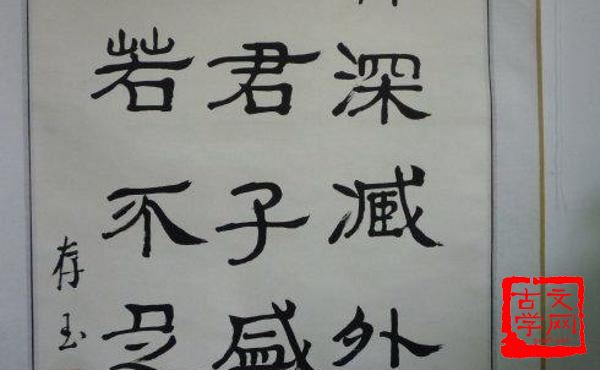 深臧外
君子盛
若不足
存玉
古文
学网